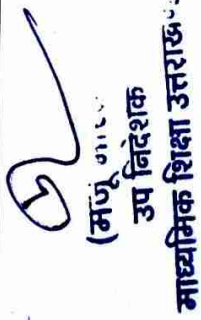 (मंजू
उप निदेशक
माध्यमिक शिक्षा उत्तराख